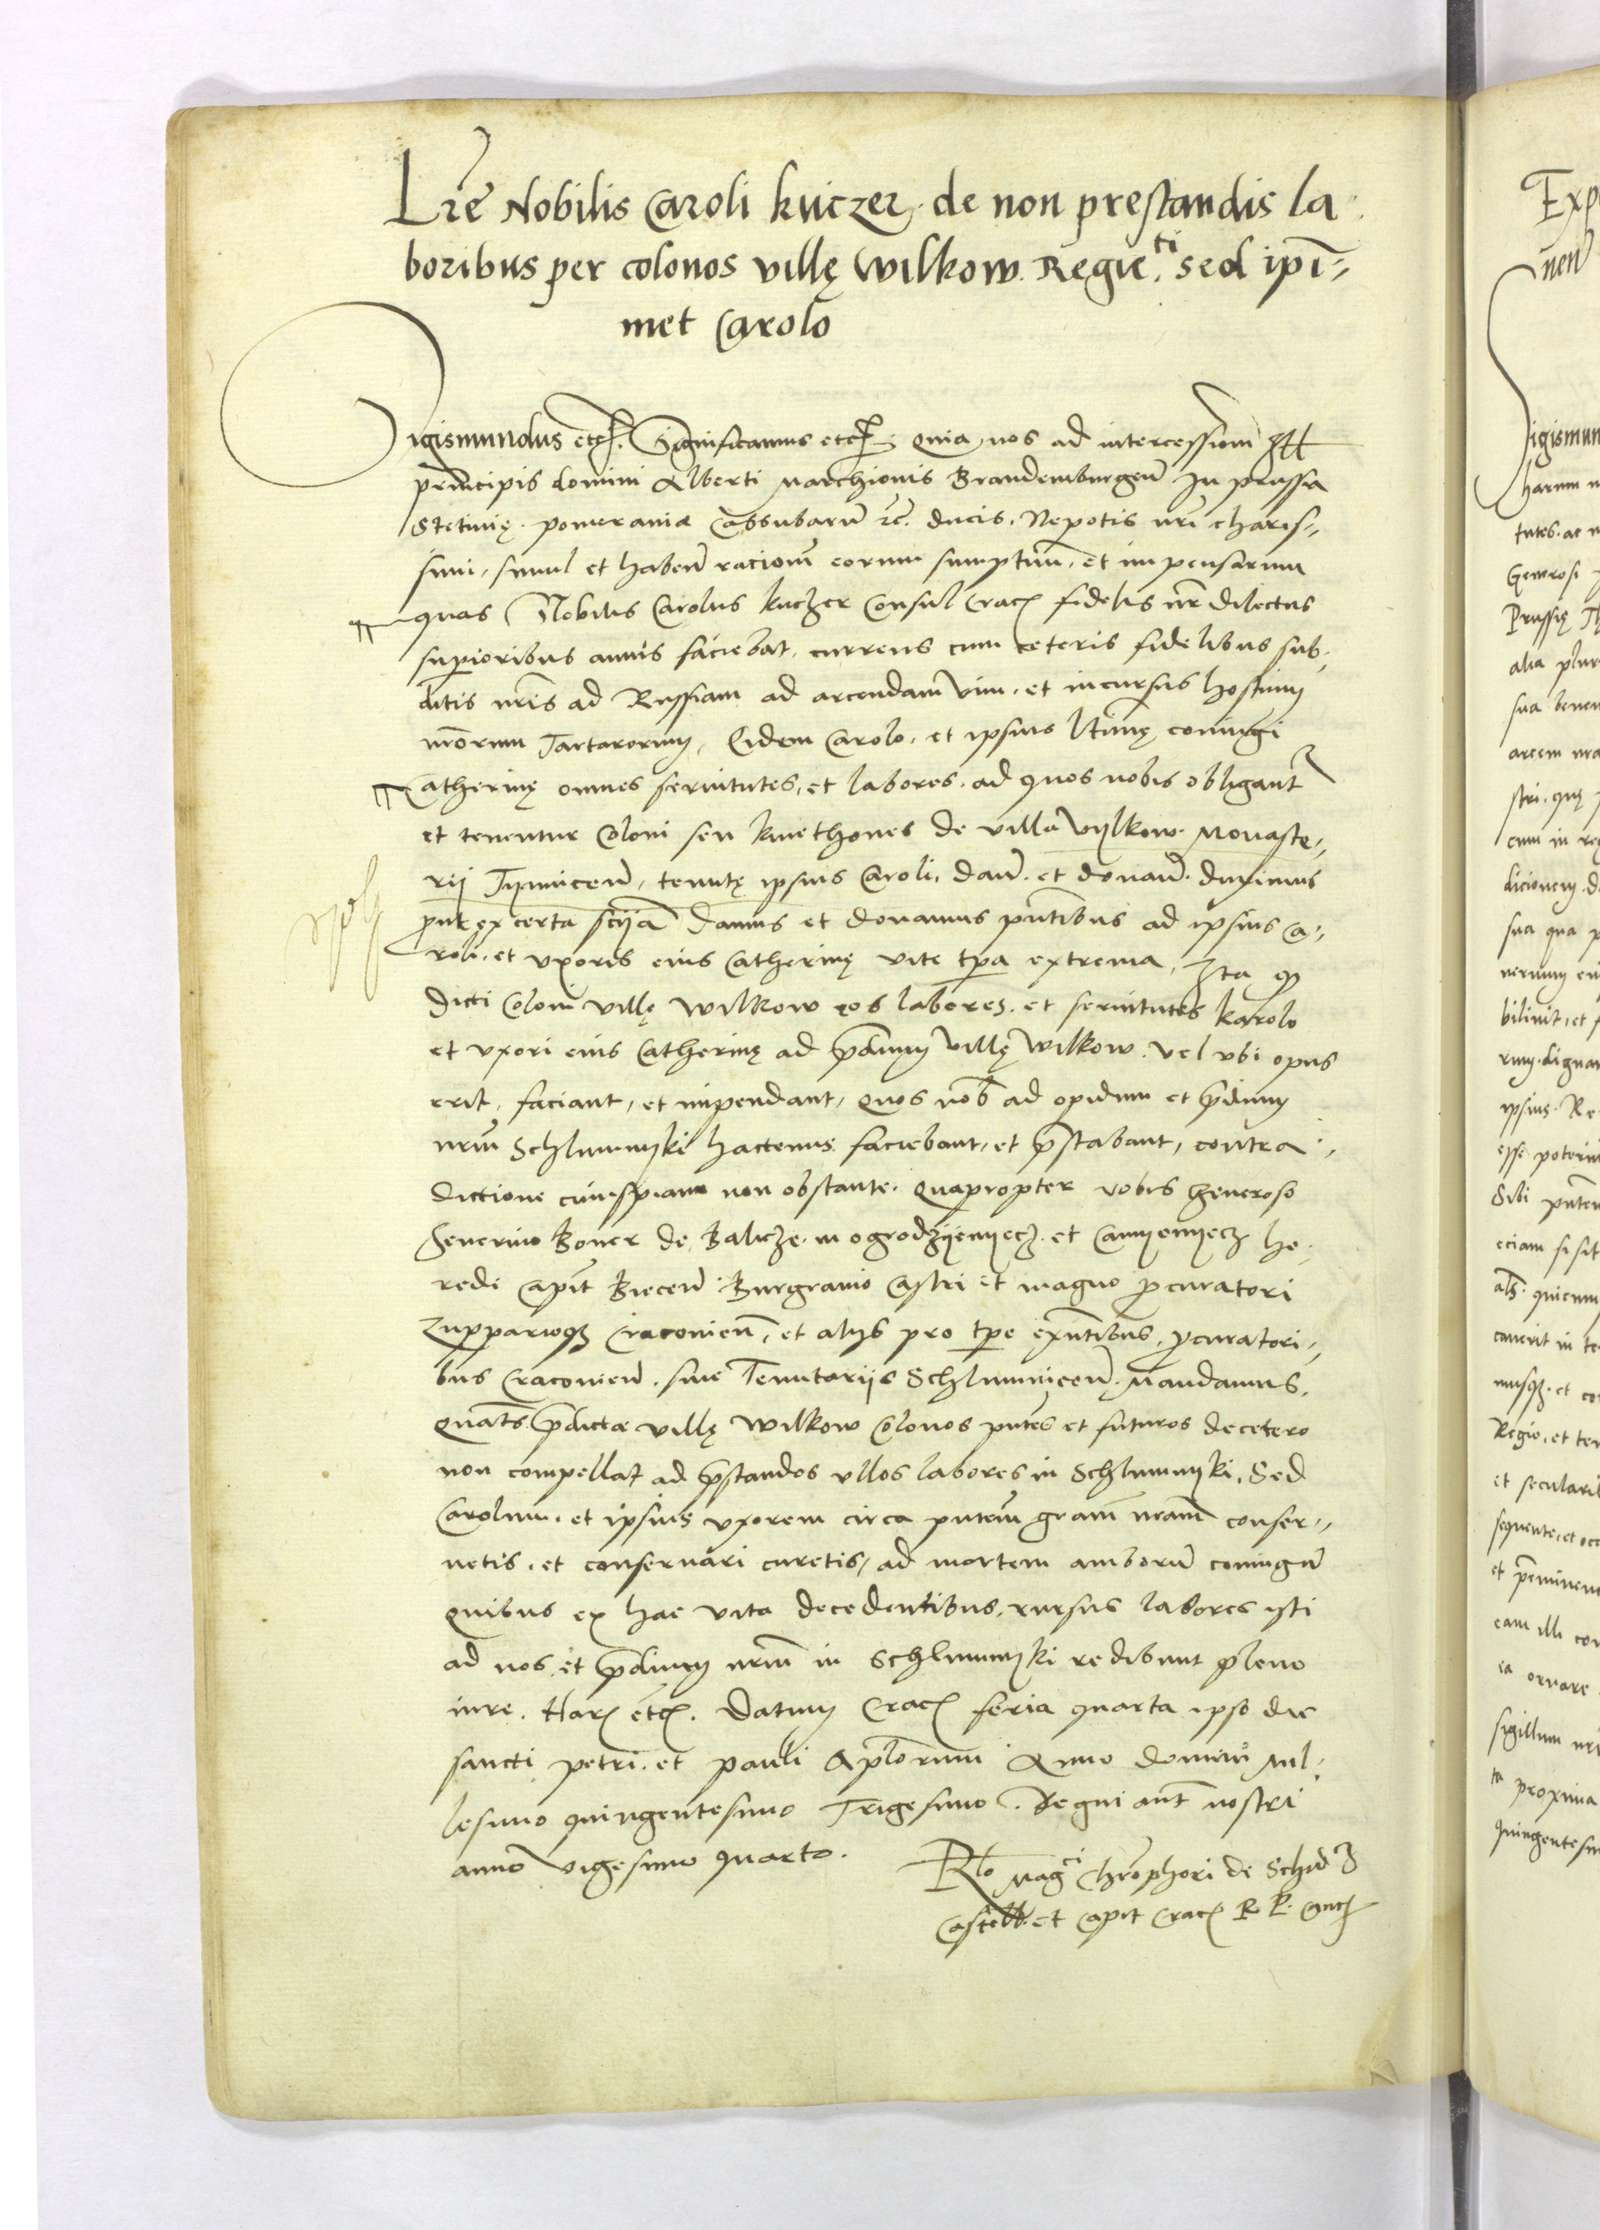 Lre Nobilis Caroli kuczer. de non prestandis la
boribus per colonos villę Wilkow. Regie. ti sed ipi=
met Carolo
Sigismundus etc. Significamus etc. Quia nos ad intercession
principis domini Alberti Marchionis Brandemburgen In prussia
Stetinię. pomeraniæ Cassubarum etc. ducis. Nepotis nri charis=
simi, simul et haben racionem eorum sumptuum, et impensarum
quas Nobilis Carolus kuczer Consul Crac fidelis nr dilectus
superioribus annis faciebat, currens cum ceteris fidelibus sub=
ditis nris ad Russiam ad arcendam vim, et incursus hostium
nrorum Tartarorum, Eidem Carolo, et ipsius ltimę coniugi
Catherinę omnes seruitutes, et labores, ad quos nobis obligant
et tenentur Coloni seu kmethones de villa Vijlkow. Monaste=
rij Tijnnicen, tenutę ipsius Caroli, dan. et donan. duximus
prout ex certa scija damus et donamus pntibus ad ipsius Ca=
roli, et vxoris eius Catherinę vite tpa extrema, Ita q
dicti Coloni villę Wilkow eos labores, et seruitutes karolo
et vxori eius Catherinę ad pdium villę Wilkow. vel vbi opus
erit, faciant, et impendant, quos nob ad opidum et pdium
nrm Schlumnyki hactenus faciebant, et pstabant, contra=
dictione cuiuspiam non obstante. Quapropter vobis generoso
Seuerino Boner de Balicze. in ogrodzyenyecz. et Camyenyecz he=
redi Capit Biecen. Burgrauio Castri et magno pcuratori
Zuppariosq Cracouien, et alijs pro tpe exntibus, pcuratori=
bus Cracouien. siue Tenutarijs Schlumnicen. Mandamus,
quats pdictæ villę Wilkow Colonos pntes et futuros decetero
non compellat ad pstandos vllos labores in Schlumnyki, Sed
Carolum, et ipsius vxorem circa pntem gram nram conser=
uetis, et conseruari curetis, ad mortem amborum coniugum
quibus ex hac vita decedentibus, rursus labores isti
ad nos, et pdium nrm in Schlumnyki redibunt pleno
iure. Har etc. Datum Crac feria quarta ipso die
sancti petri, et pauli Aplorum Anno domini Mil=
lesimo quingentesimo Trigesimo. Regni aut nostri
anno vigesimo quarto.
Rlo Mag ci Chrophori de Schid
Castell. et Capit Crac R. P. Canc